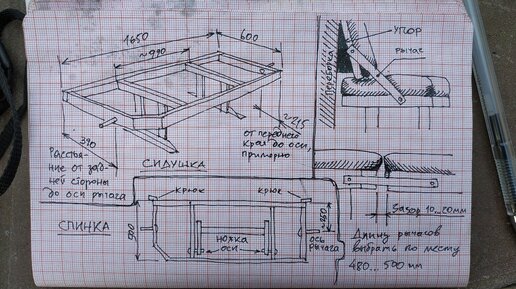 1650
600
~990
390
~215
Расстоя-
ние от зад-
ней стороны
до оси рычага
СИДУШКА
от переднего
края до оси,
примерно
УПОР
рычаг
Переборка
Зазор 10...20мм
Длину рычагов
выбрать по месту
480...500 мм
СПИНКА
крюк
крюк
600
ножка
оси
~250
ось
рычага